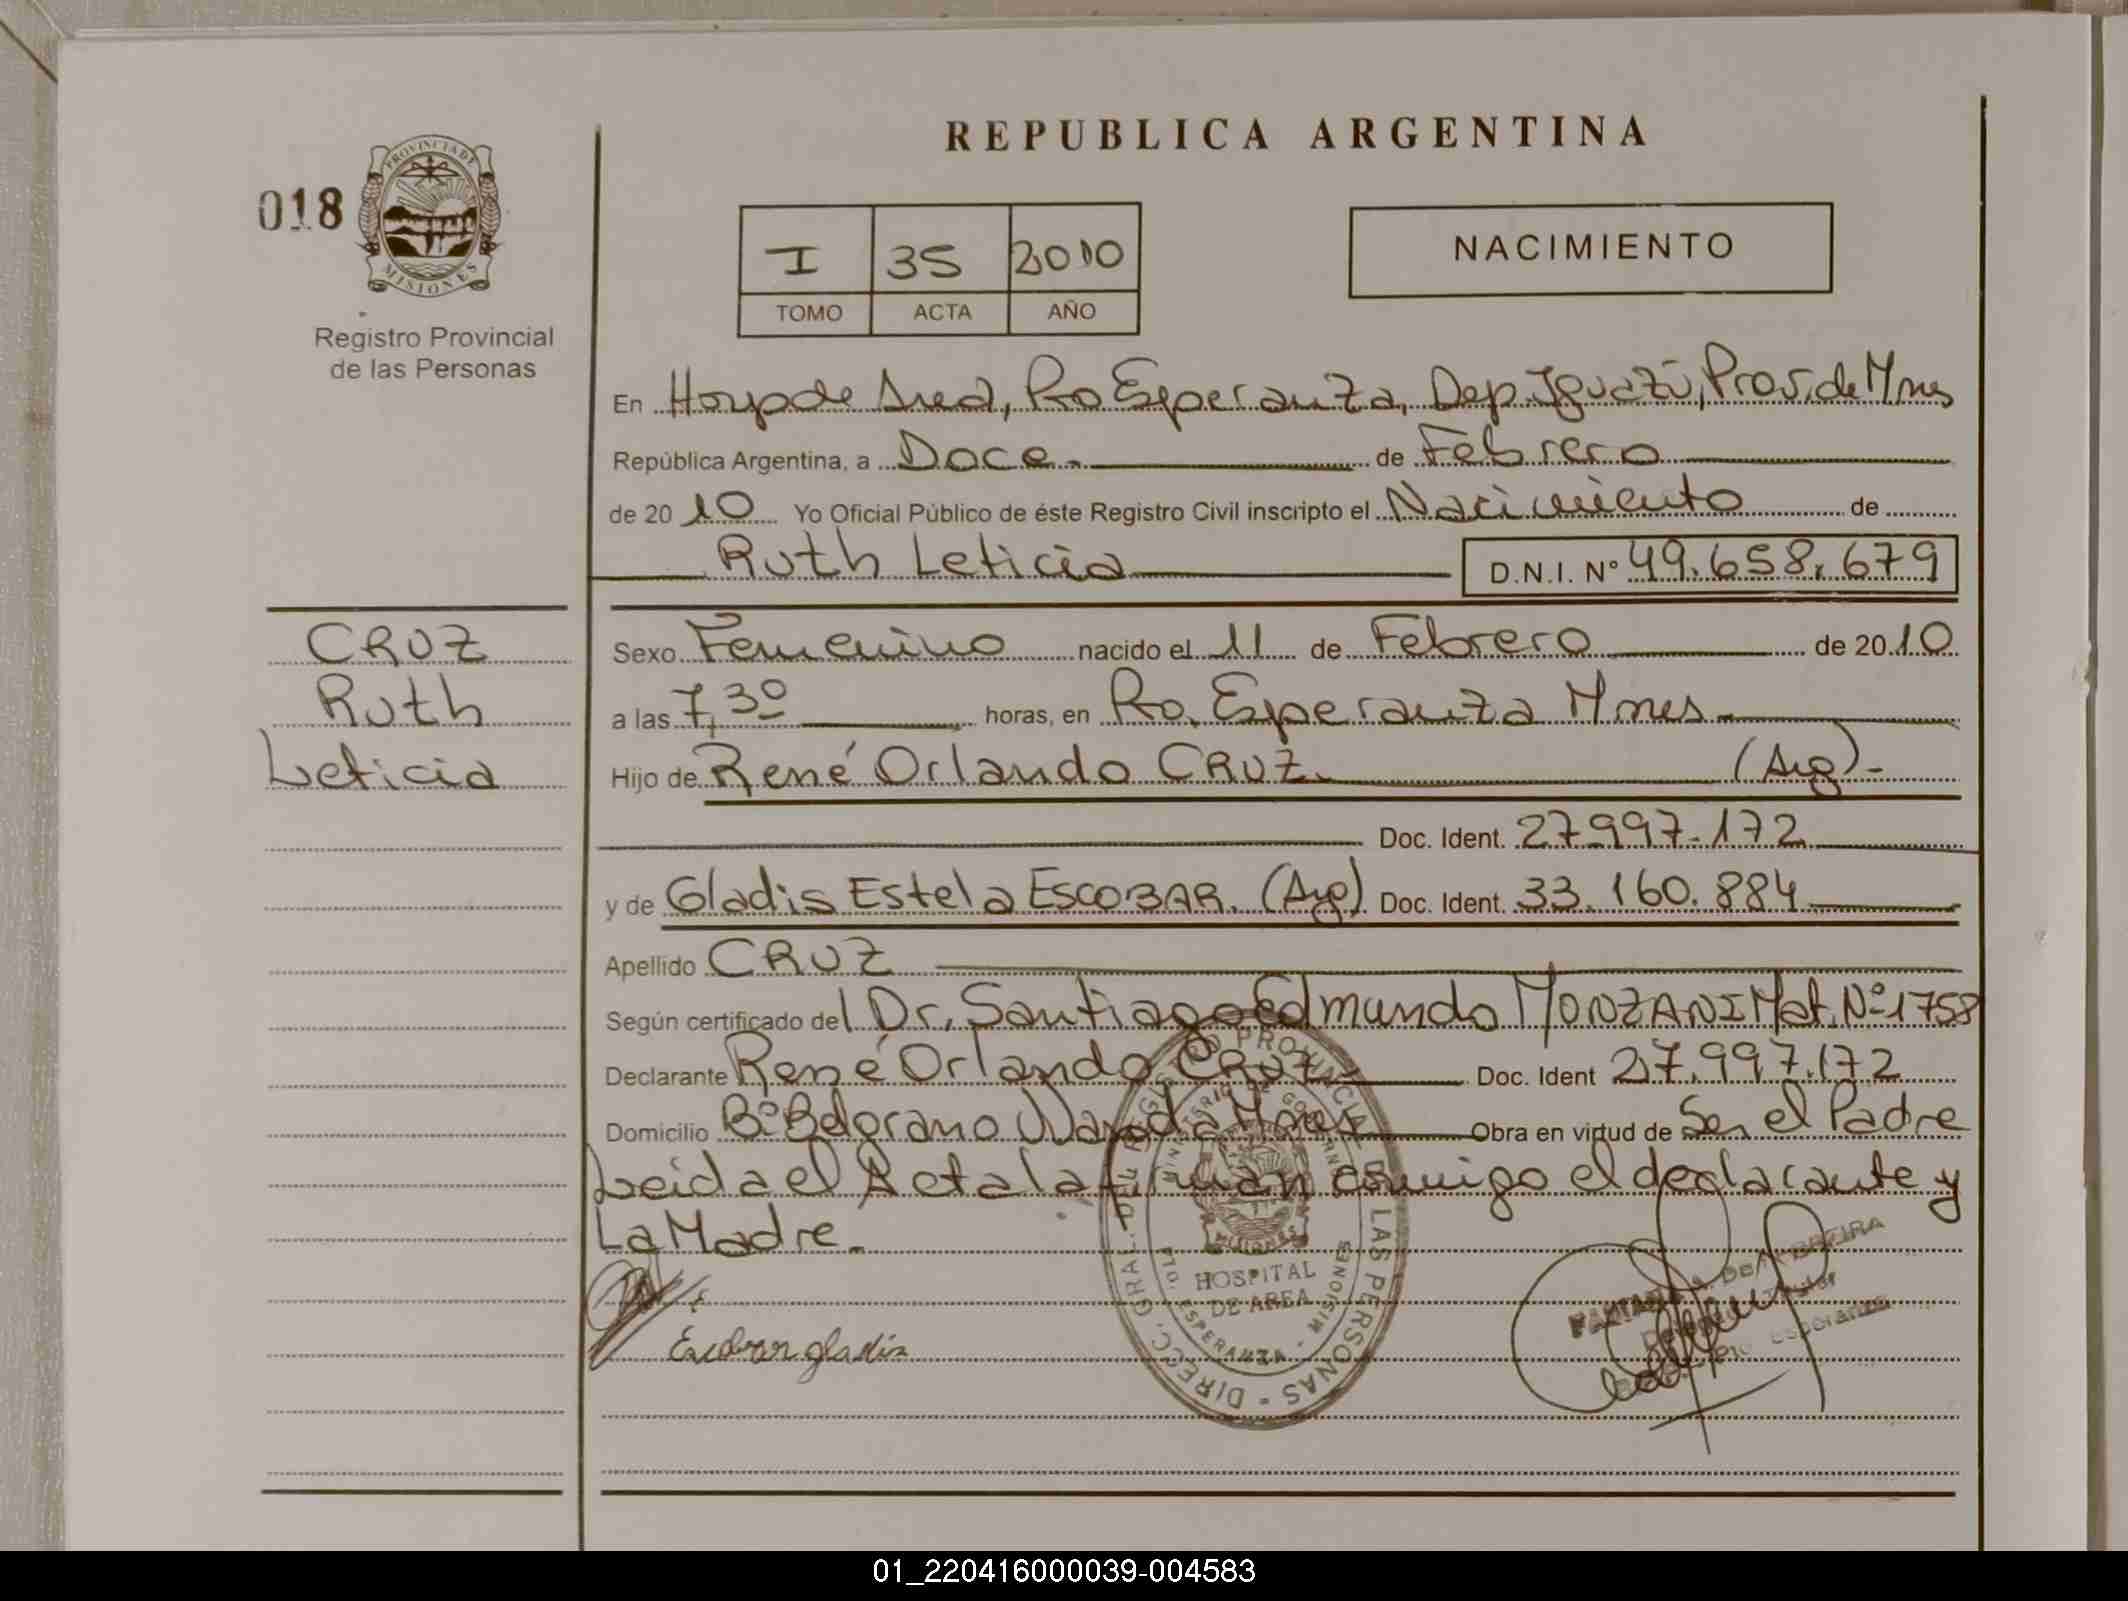 REPUBLICA ARGENTINA
018
PROVINCIA DE
MISIONES
Registro Provincial
de las Personas
I 35 2010
TOMO ACTA AÑO
NACIMIENTO
En Hosp de Area, Pto Esperanza, Dep. Iguazú, Prov. de Mnes
República Argentina, a Doce.- de Febrero
de 2010 Yo Oficial Público de éste Registro Civil inscripto el Nacimiento de
Ruth Leticia D.N.I. N° 49.658.679
CRUZ
Ruth
Leticia
Sexo Femenino nacido el 11 de Febrero de 2010
a las 7,30 horas, en Pto. Esperanza Mnes.-
Hijo de René Orlando CRUZ. (Arg).-
Doc. Ident. 27.997.172
y de Gladis Estela ESCOBAR. (Arg) Doc. Ident. 33.160.884
Apellido CRUZ
Según certificado del Dr. Santiago Edmundo MONZANI Mat. Nº 1758
Declarante René Orlando CRUZ.- Doc. Ident 27.997.172
Domicilio Bº Belgrano Wanda Mnes Obra en virtud de Ser el Padre
Leida el Acta la firman conmigo el declarante y
La Madre.
Escobar gladis
DIRECC. GRAL. DEL REGISTRO PROVINCIAL DE LAS PERSONAS
MISIONES
HOSPITAL
DE AREA
ESPERANZA - MISIONES
01_220416000039-004583